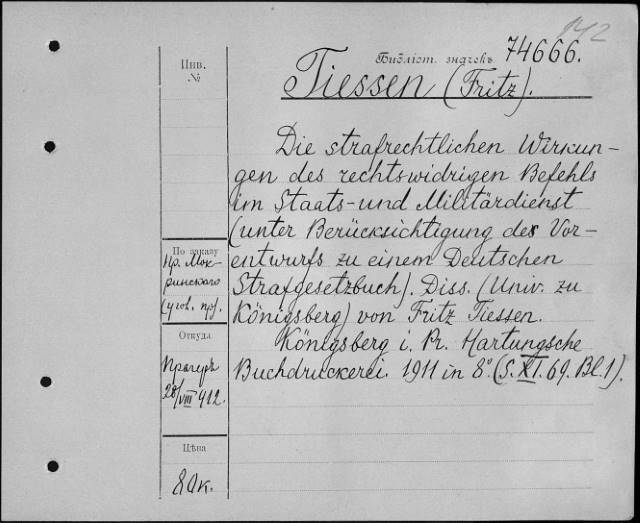 142
Библіот. значекъ 74666.
Инв.
№
Tiessen (Fritz).
Die strafrechtlichen Wirkun-
gen des rechtswidrigen Befehls
im Staats- und Militärdienst
(unter Berücksichtigung des Vor-
entwurfs zu einem Deutschen
Strafgesetzbuch). Diss. (Univ. zu
Königsberg) von Fritz Tiessen.
Königsberg i. Pr. Hartungsche
Buchdruckerei. 1911 in 8º. (S. XI. 69. Bl. 1).
По заказу
пр. Мок-
ринскаго
(угов. пр).
Откуда
Прагеръ
20/VIII 912.
Цѣна
80к.